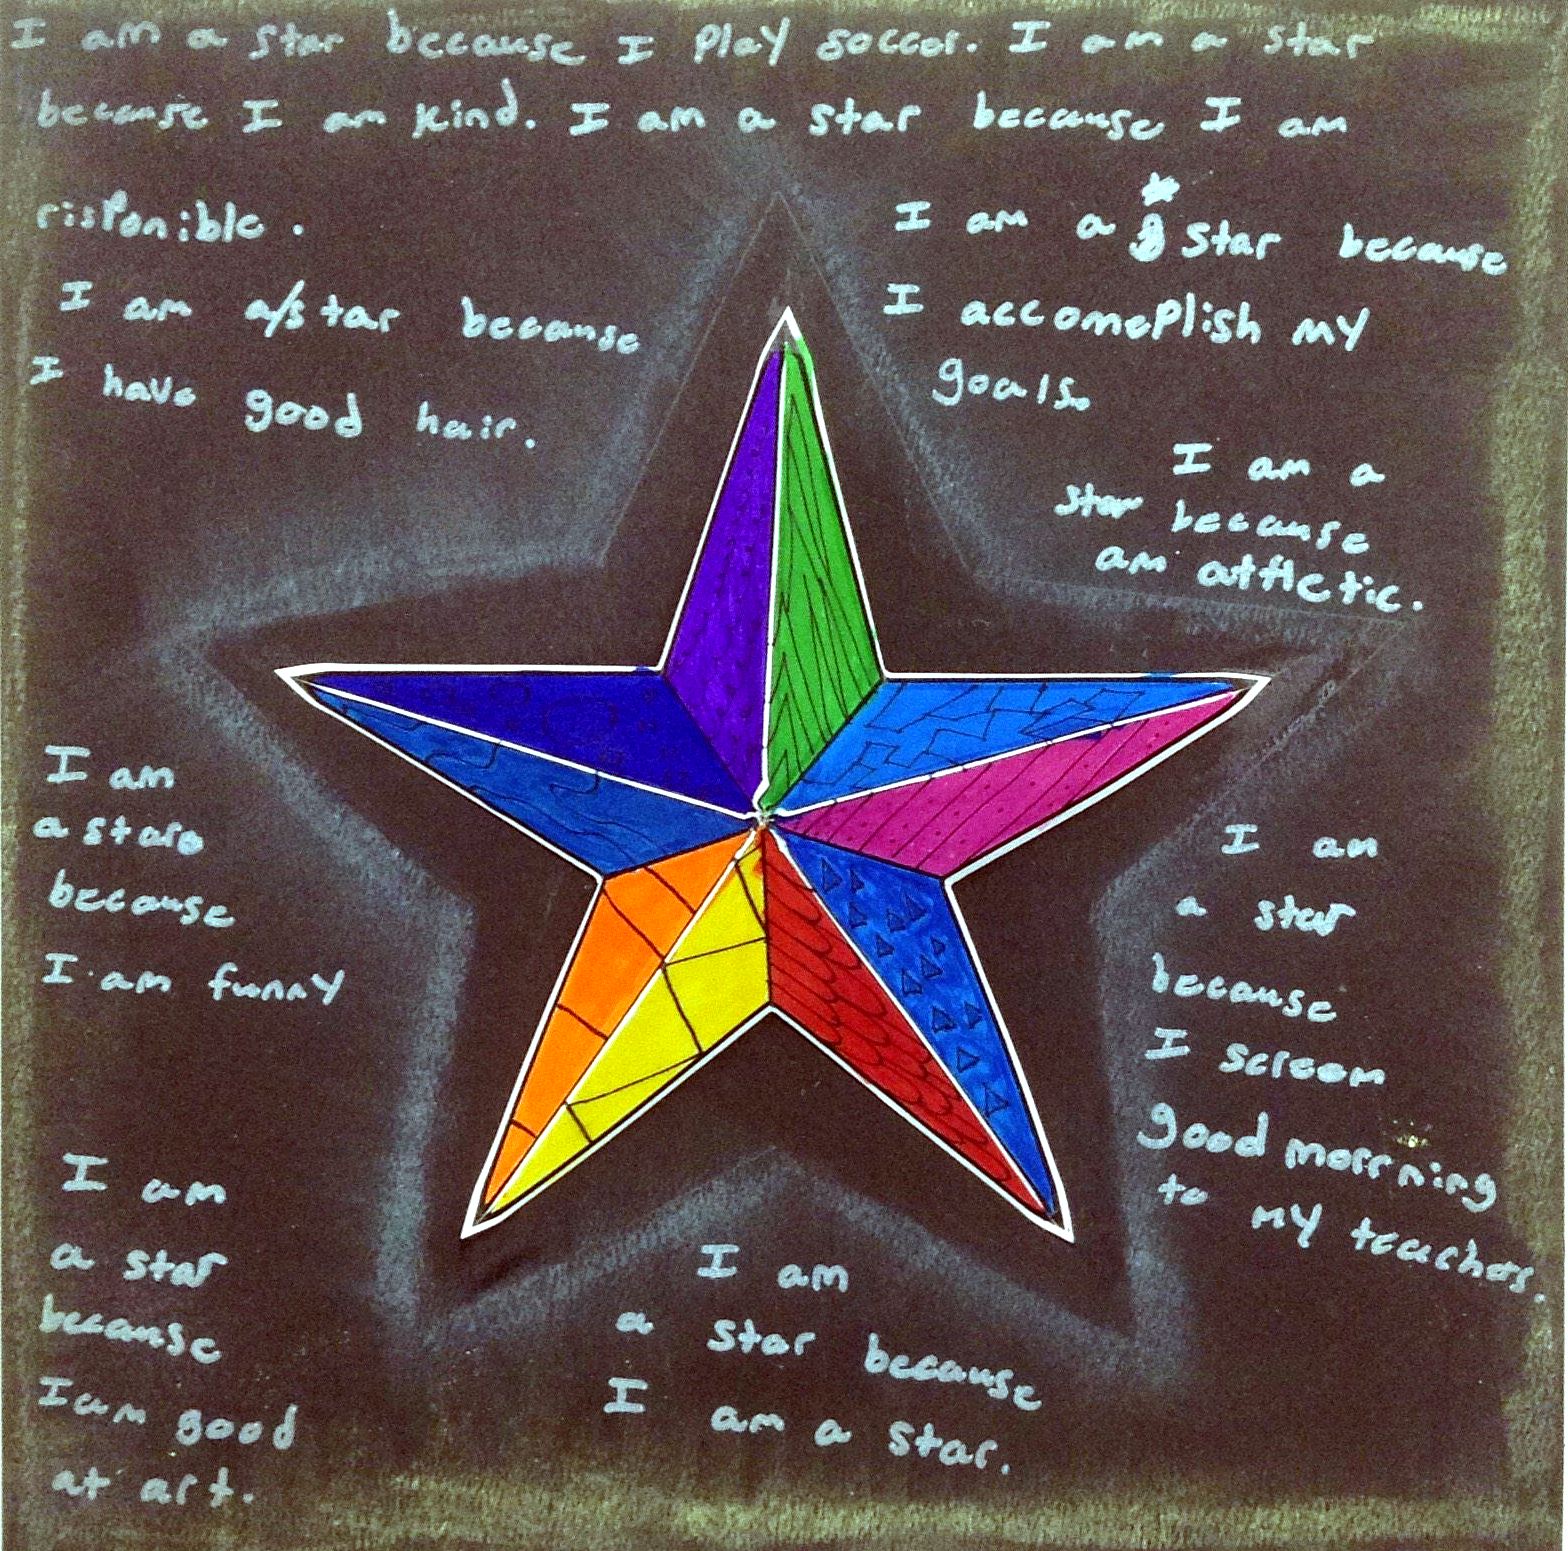 I am a star because I play soccor. I am a star
because I am kind. I am a star because I am
risponible.
I am a star because
I have good hair.
I am a star because
I accomeplish my
goals.
I am a
star because
am atfletic.
I am
a stare
because
I am funny
I am
a star
because
I scream
good morrning
to my teachor.
I am
a star
because
I am good
at art.
I am
a star because
I am a star.